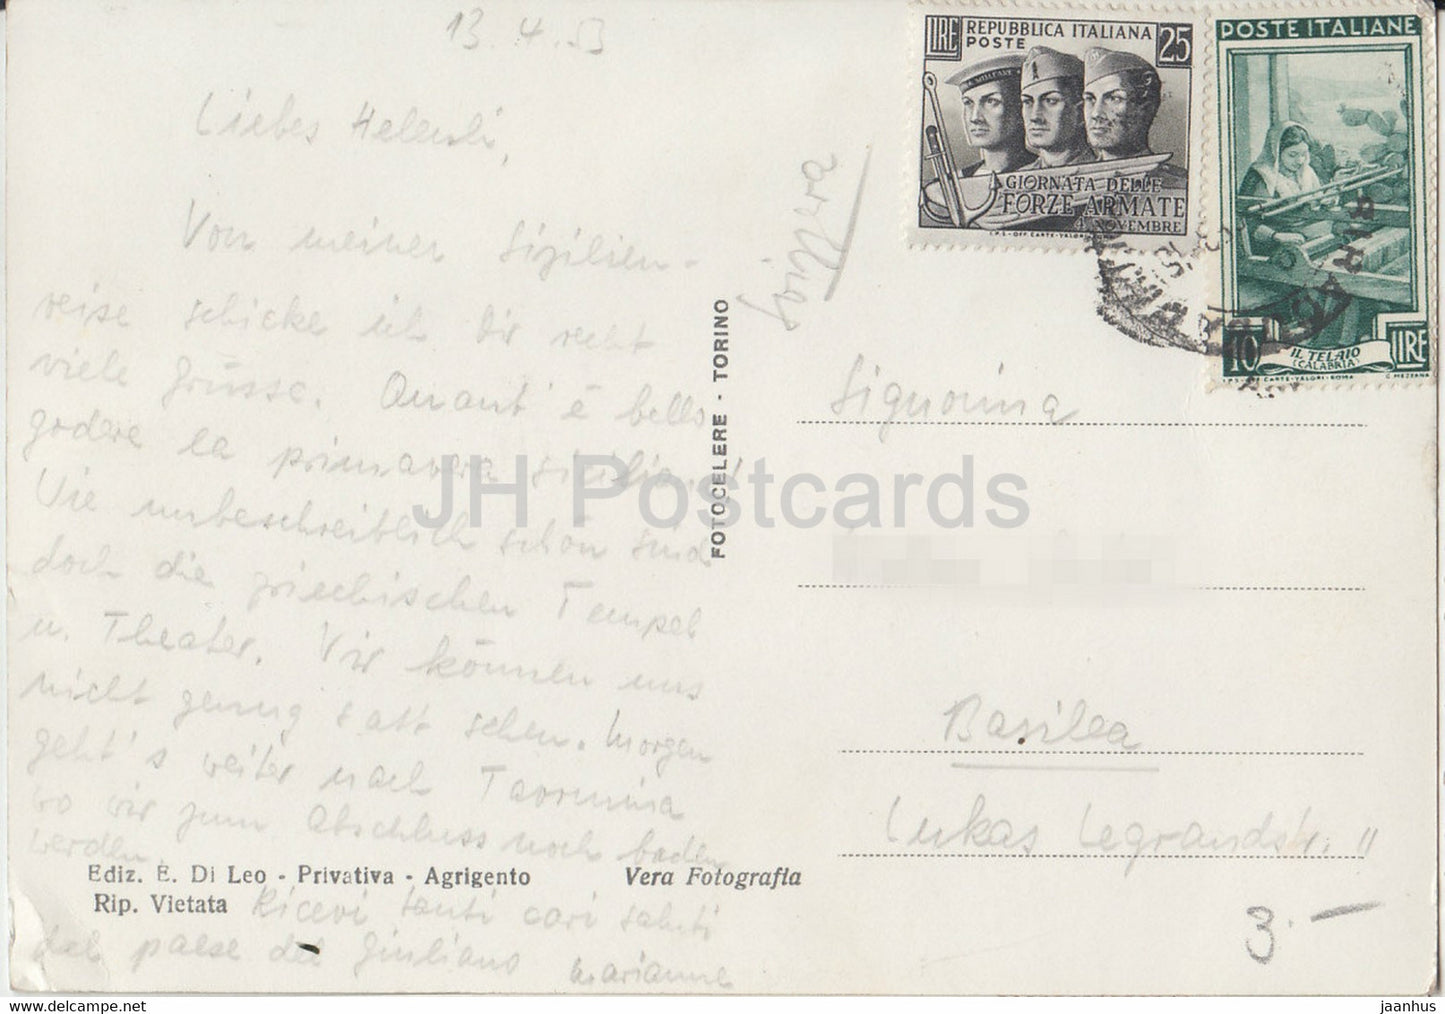 13.4.53
Liebes Helenli,
Von meiner Sizilien-
reise schicke ich Dir recht
viele Grüsse. Quant'è bello
godere la primavera siciliana!
Wie unbeschreiblich schön sind
doch die griechischen Tempel
u. Theater. Wir können uns
nicht genug satt sehen. Morgen
geht's weiter nach Taormina
wo wir zum Abschluss noch baden
werden.
Ricevi tanti cari saluti
dal paese del Giuliano Marianne
Ediz. E. Di Leo - Privativa - Agrigento Vera Fotografia
Rip. Vietata
FOTOCELERE - TORINO
Svizzera
LIRE REPUBBLICA ITALIANA 25
POSTE
GIORNATA DELLE
FORZE ARMATE
4 NOVEMBRE
I.P.S.-OFF. CARTE-VALORI
POSTE ITALIANE
10 IL TELAIO LIRE
(CALABRIA)
I.P.S.-OFF. CARTE-VALORI-ROMA C. MEZZANA
Signorina
Basilea
Lukas Legrandstr. 11
3.-
JH Postcards
https://jhpostcards.com jaanhus